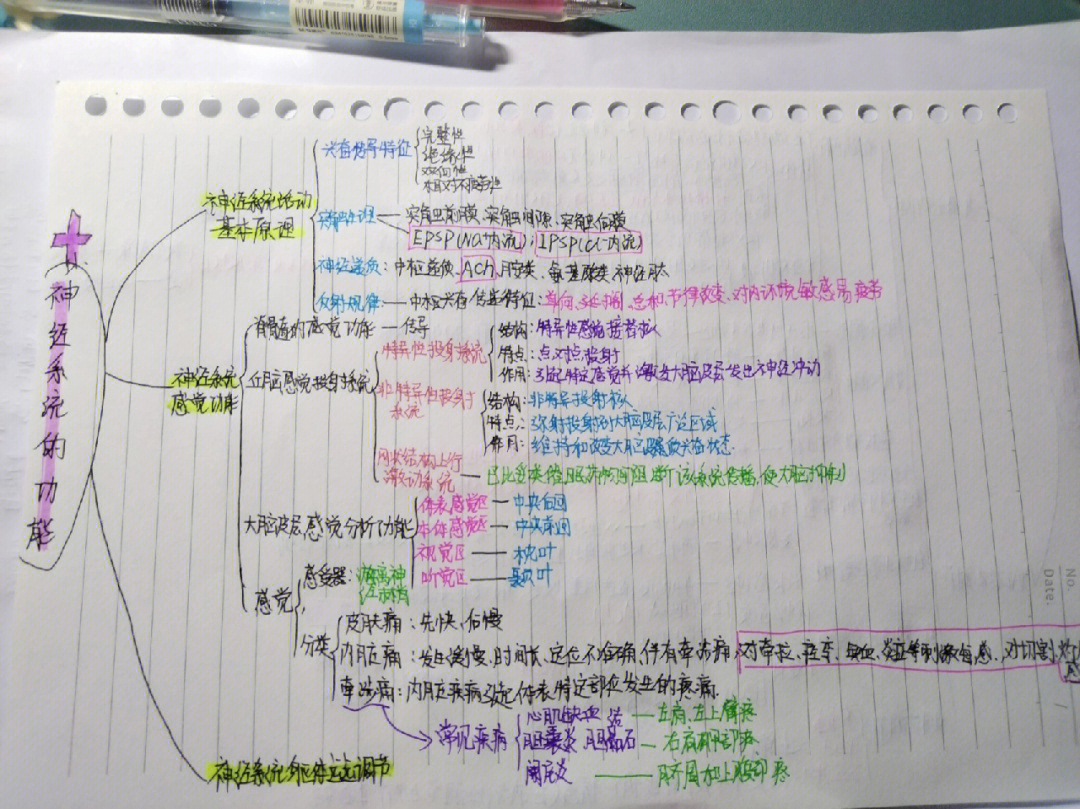 神经系统的功能
神经系统活动
基本原理
兴奋传导特征
完整性
绝缘性
双向性
相对不疲劳性
突触生理 — 突触前膜、突触间隙、突触后膜
EPSP(Na+内流); IPSP(Cl-内流)
神经递质:中枢递质、ACh、胺类、氨基酸类、神经肽
反射规律 — 中枢兴奋传递特征:单向、延搁、总和、节律改变、对内环境敏感易疲劳
神经系统
感觉功能
脊髓的感觉功能 — 传导
丘脑感觉投射系统
特异性投射系统
结构:特异性感觉接替核
特点:点对点投射
作用:引起特定感觉并激发大脑皮层发出神经冲动
非特异性投射
系统
结构:非特异投射核
特点:弥散投射到大脑皮层广泛区域
作用:维持和改变大脑皮层兴奋状态
网状结构上行
激动系统 — 巴比妥类催眠药物可阻断该系统传播,使大脑抑制
大脑皮层感觉分析功能
体表感觉区 — 中央后回
本体感觉区 — 中央前回
视觉区 — 枕叶
听觉区 — 颞叶
感觉
感受器:
分类
皮肤痛:先快、后慢
内脏痛:发生缓慢、时间长、定位不准确,伴有牵涉痛,对牵拉、痉挛、缺血、炎症等刺激敏感、对切割
牵涉痛:内脏疾病引起体表特定部位发生的疼痛.
常见疾病
心肌缺血 — 左肩、左上臂疼
胆囊炎、胆结石 — 右肩胛部疼
阑尾炎 — 脐周和上腹部疼
神经系统对躯体运动调节
No.
Date.